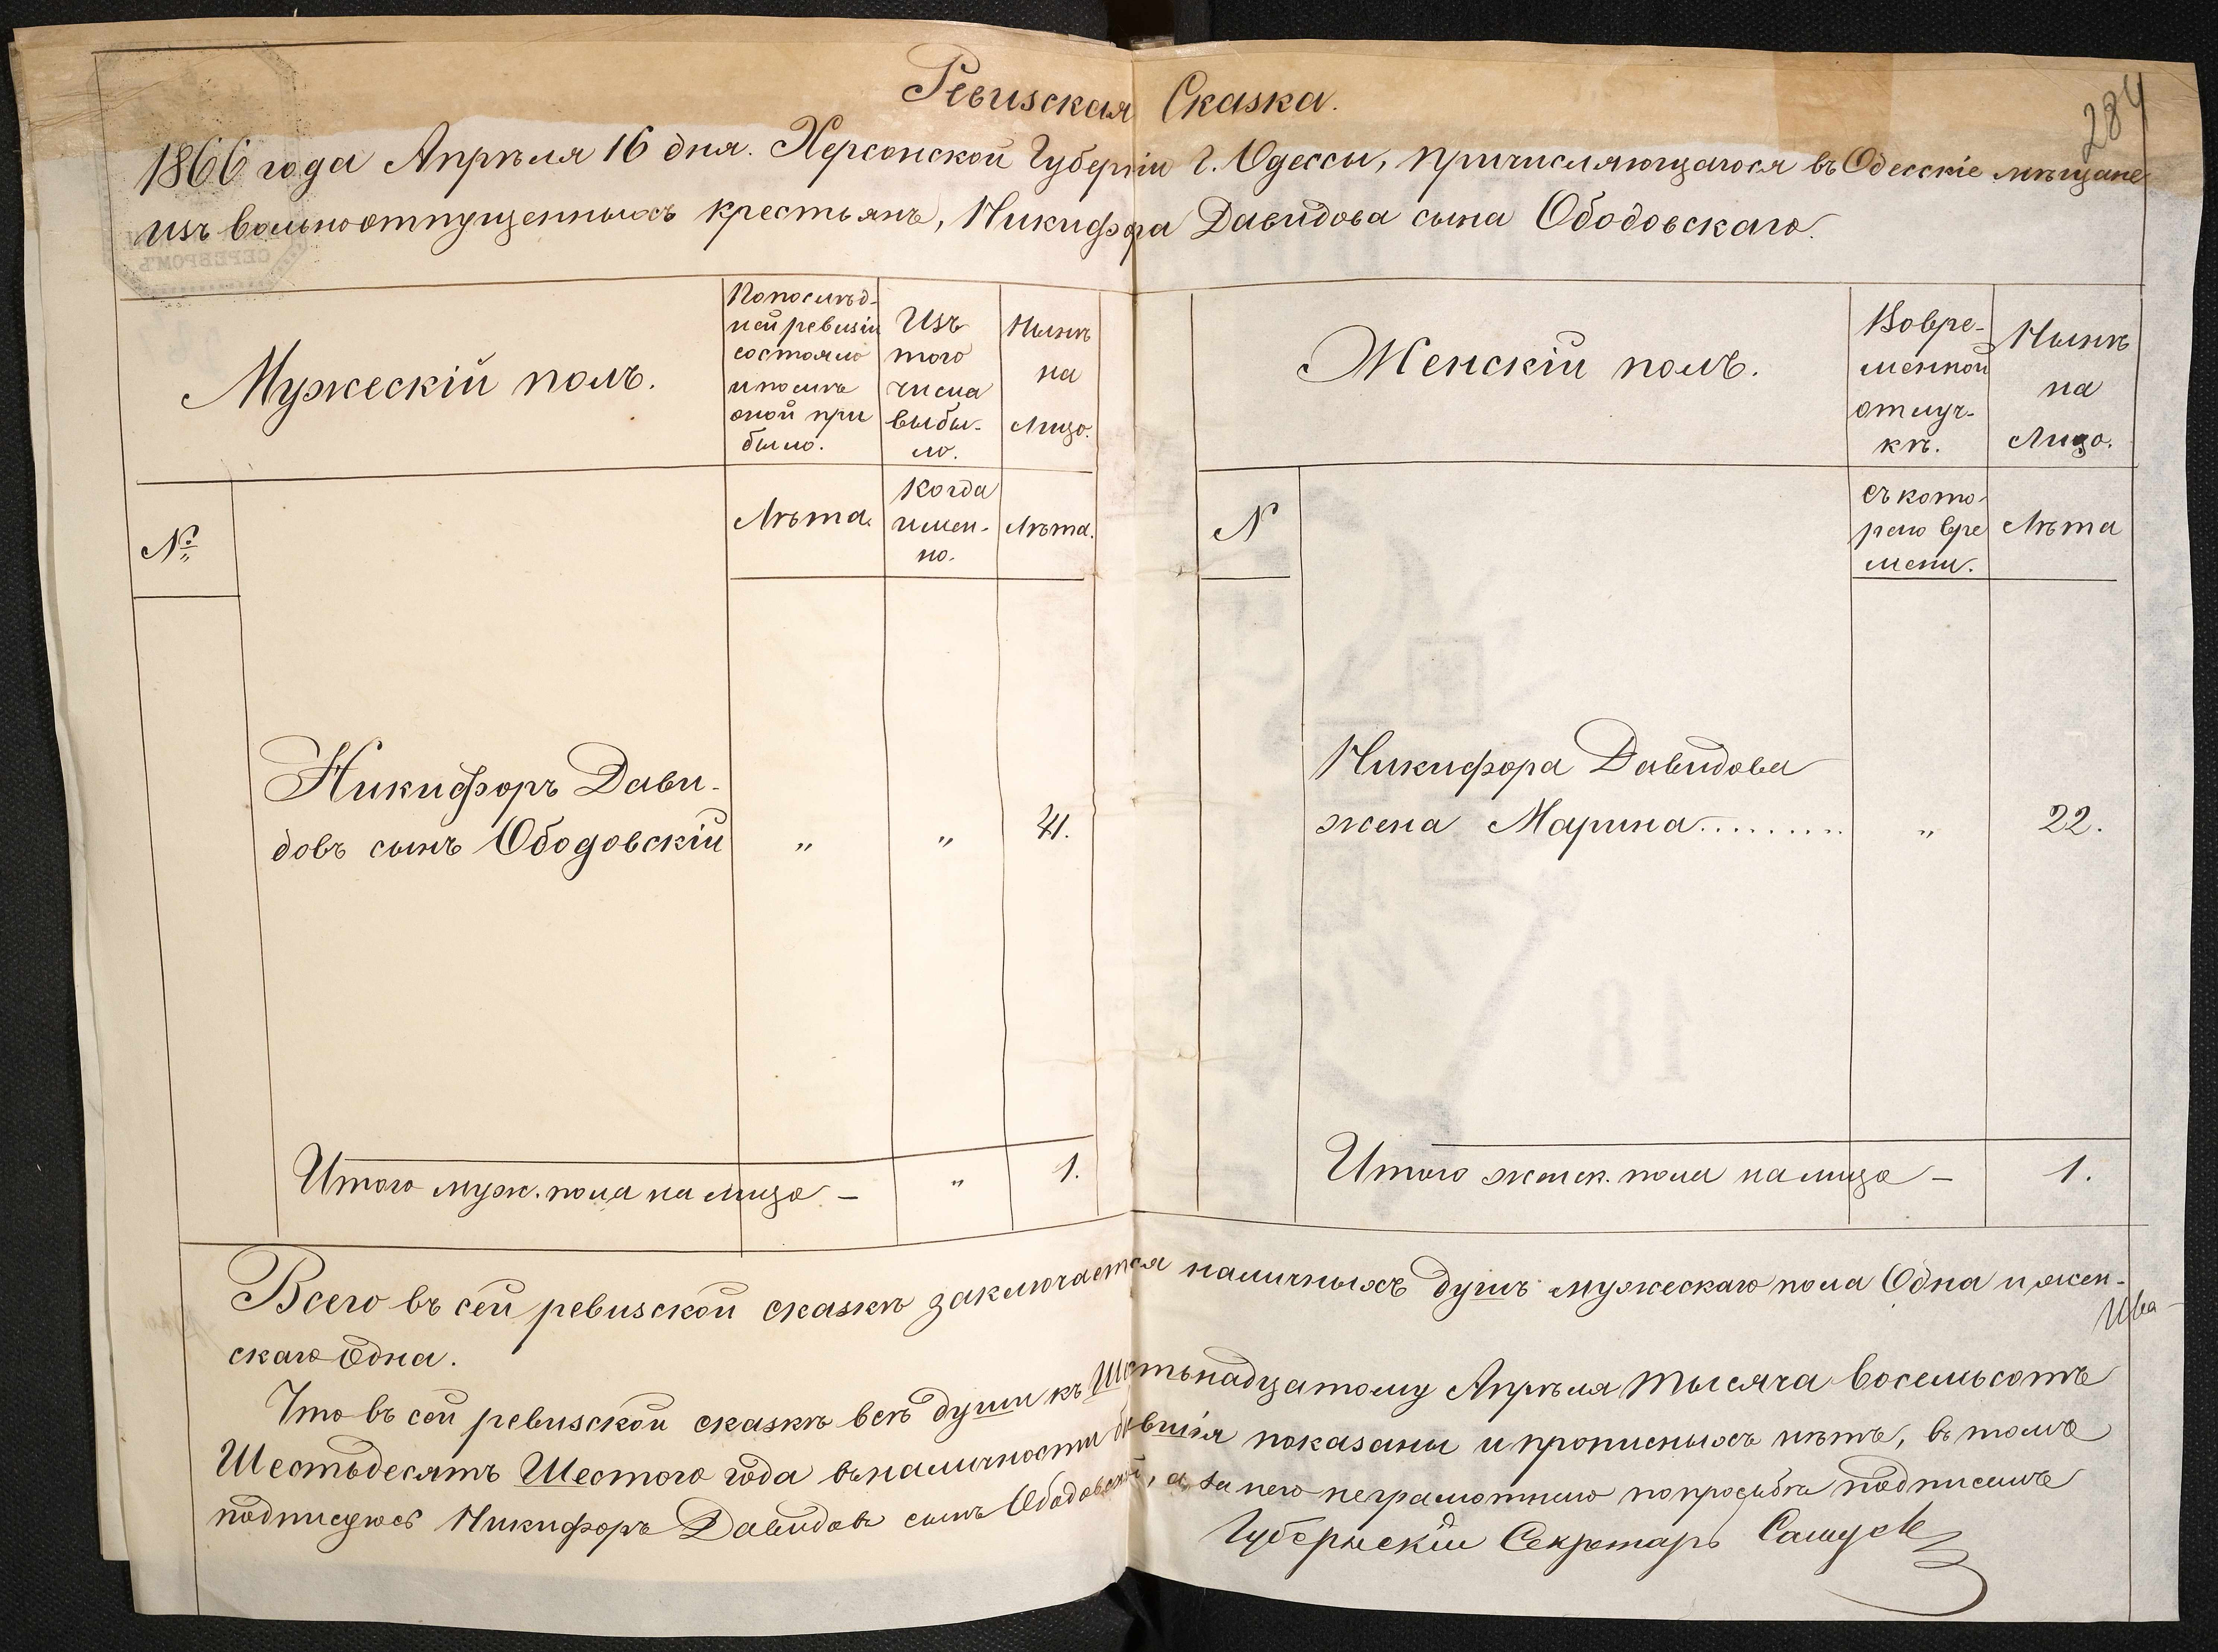 284
Ревизская Сказка.
1866 года Апрѣля 16 дня. Херсонской Губерніи Г. Одессы, причисляющагося въ Одесскіе мѣщане
изъ вольноотпущенныхъ крестьянъ, Никифора Давидова сына Ободовскаго.
СЕРЕБРОМЪ
Мужескій полъ.
По послѣд-
ней ревизіи
состояло
и послѣ
оной при
было.
Изъ
того
числа
выбы-
ло.
Нынѣ
на
лицо.
№
Лѣта.
Когда
имен-
но.
Лѣта.
Никифоръ Дави-
довъ сынъ Ободовскій " "
Итого муж. пола на лицо - " 1.
Женскій полъ.
Во вре-
менной
отлуч-
кѣ.
Нынѣ
на
Лицо.
N
съ кото-
раго вре
мени.
Лѣта
Никифора Давидова
жена Марина......... " 22.
Итого женск. пола на лицо - 1.
Всего въ сей ревизской сказкѣ заключается наличныхъ душъ мужескаго пола Одна и жен-
скаго Одна.
Ива-
Что въ сей ревизской сказкѣ всѣ души къ Шестьнадцатому Апрѣля тысяча восемьсотъ
Шестьдесятъ Шестого года въ наличности бывшія показаны и прописныхъ нѣтъ, въ томъ
подписуюсь Никифоръ Давидовъ сынъ Ободовскій, а за него неграмотнаго по прозьбѣ подписалъ
Губернскій Секретарь